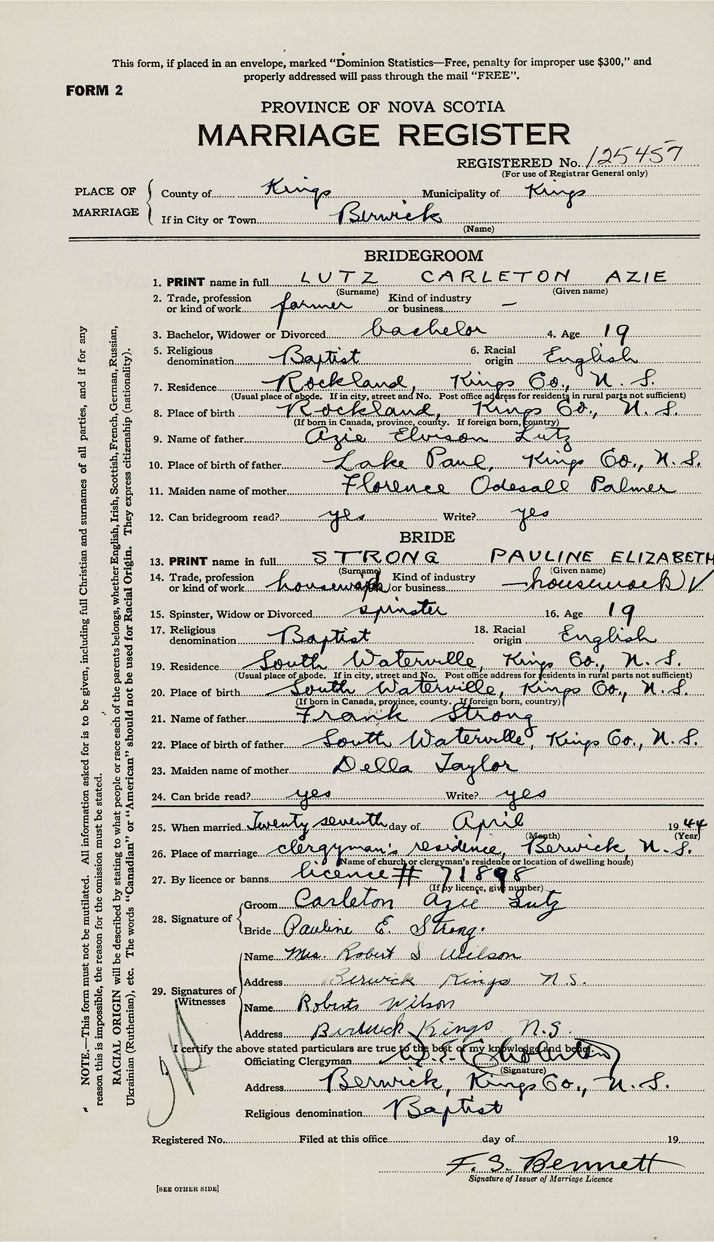 This form, if placed in an envelope, marked "Dominion Statistics—Free, penalty for improper use $300," and
properly addressed will pass through the mail "FREE".
FORM 2
PROVINCE OF NOVA SCOTIA
MARRIAGE REGISTER
REGISTERED No. 125457
(For use of Registrar General only)
PLACE OF MARRIAGE
County of Kings Municipality of Kings
If in City or Town Berwick
(Name)
BRIDEGROOM
1. PRINT name in full LUTZ CARLETON AZIE
(Surname) (Given name)
2. Trade, profession or kind of work farmer Kind of industry or business —
3. Bachelor, Widower or Divorced bachelor 4. Age 19
5. Religious denomination Baptist 6. Racial origin English
7. Residence Rockland, Kings Co., N. S.
(Usual place of abode. If in city, street and No. Post office address for residents in rural parts not sufficient)
8. Place of birth Rockland, Kings Co., N. S.
(If born in Canada, province, county. If foreign born, country)
9. Name of father Azie Elvison Lutz
10. Place of birth of father Lake Paul, Kings Co., N. S.
11. Maiden name of mother Florence Odesall Palmer
12. Can bridegroom read? yes Write? yes
BRIDE
13. PRINT name in full STRONG PAULINE ELIZABETH
(Surname) (Given name)
14. Trade, profession or kind of work housework Kind of industry or business — housework
15. Spinster, Widow or Divorced spinster 16. Age 19
17. Religious denomination Baptist 18. Racial origin English
19. Residence South Waterville, Kings Co., N. S.
(Usual place of abode. If in city, street and No. Post office address for residents in rural parts not sufficient)
20. Place of birth South Waterville, Kings Co., N. S.
(If born in Canada, province, county. If foreign born, country)
21. Name of father Frank Strong
22. Place of birth of father South Waterville, Kings Co., N. S.
23. Maiden name of mother Della Taylor
24. Can bride read? yes Write? yes
25. When married Twenty seventh day of April 1944
(Month) (Year)
26. Place of marriage clergyman's residence, Berwick, N. S.
(Name of church or clergyman's residence or location of dwelling house)
27. By licence or banns licence # 71898
(If by licence, give number)
28. Signature of
Groom Carleton Azie Lutz
Bride Pauline E. Strong.
29. Signatures of Witnesses
Name Mrs. Robert S Wilson
Address Berwick Kings N.S.
Name Robert S Wilson
Address Berwick Kings N.S.
I certify the above stated particulars are true to the best of my knowledge and belief
Officiating Clergyman
(Signature)
Address Berwick, Kings Co., N. S.
Religious denomination Baptist
Registered No. Filed at this office day of 19
F. S. Bennett
Signature of Issuer of Marriage Licence
[SEE OTHER SIDE]
NOTE.—This form must not be mutilated. All information asked for is to be given, including full Christian and surnames of all parties, and if for any
reason this is impossible, the reason for the omission must be stated.
RACIAL ORIGIN will be described by stating to what people or race each of the parents belongs, whether English, Irish, Scottish, French, German, Russian,
Ukrainian (Ruthenian), etc. The words "Canadian" or "American" should not be used for Racial Origin. They express citizenship (nationality).